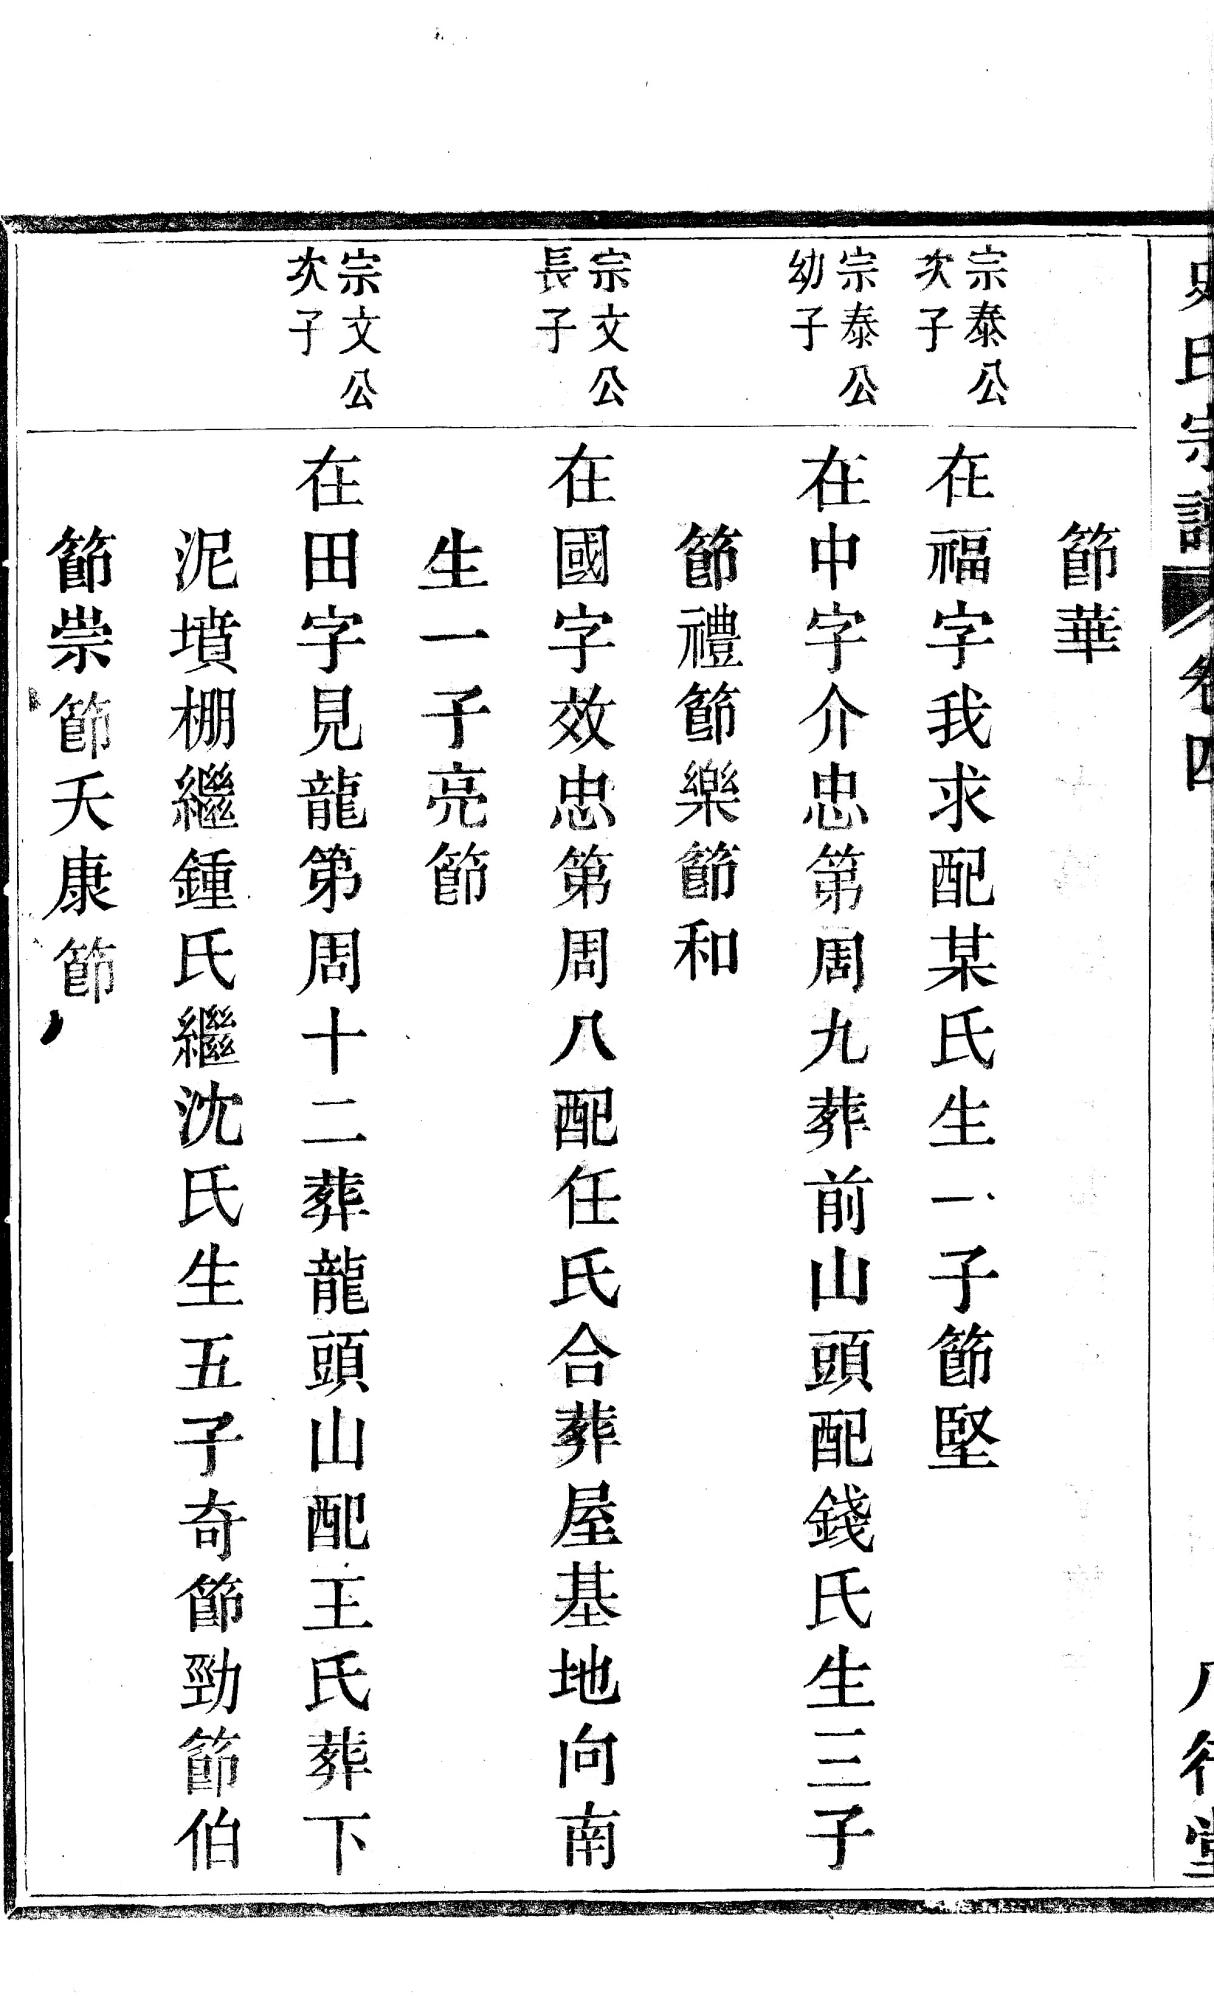 史氏宗譜 卷四 八行堂
節華
宗泰公
次子
在福字我求配某氏生一子節堅
宗泰公
幼子
在中字介忠第周九葬前山頭配錢氏生三子
節禮節樂節和
宗文公
長子
在國字效忠第周八配任氏合葬屋基地向南
生一子亮節
宗文公
次子
在田字見龍第周十二葬龍頭山配王氏葬下
泥墳棚繼鍾氏繼沈氏生五子奇節勁節伯
節崇節夭康節